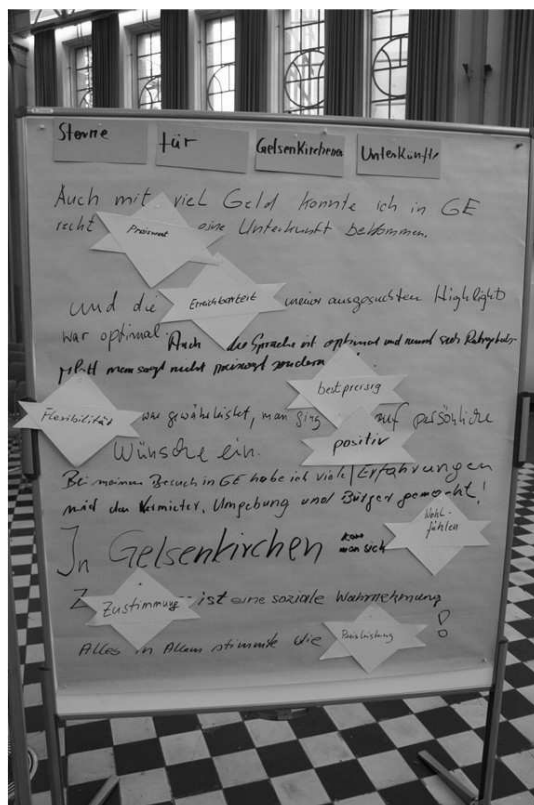 Sterne für Gelsenkirchener Unterkünfte
Auch mit viel Geld konnte ich in GE
recht Preiswert eine Unterkunft bekommen.
und die Erreichbarkeit meiner ausgesuchten Highlight
war optimal. Auch die Sprache ist optimal und nennt sich
man sagt nicht sondern bestpreisig
Flexibilität war gewährleistet, man ging auf persönliche
Wünsche ein. positiv
Bei meinem Besuch in GE habe ich viele Erfahrungen
mit den Vermieter, Umgebung und Bürger gemacht!
In Gelsenkirchen kann man sich Wohl-
fühlen
Zustimmung ist eine soziale Wahrnehmung
Alles in Allem stimmte die Preisleistung!